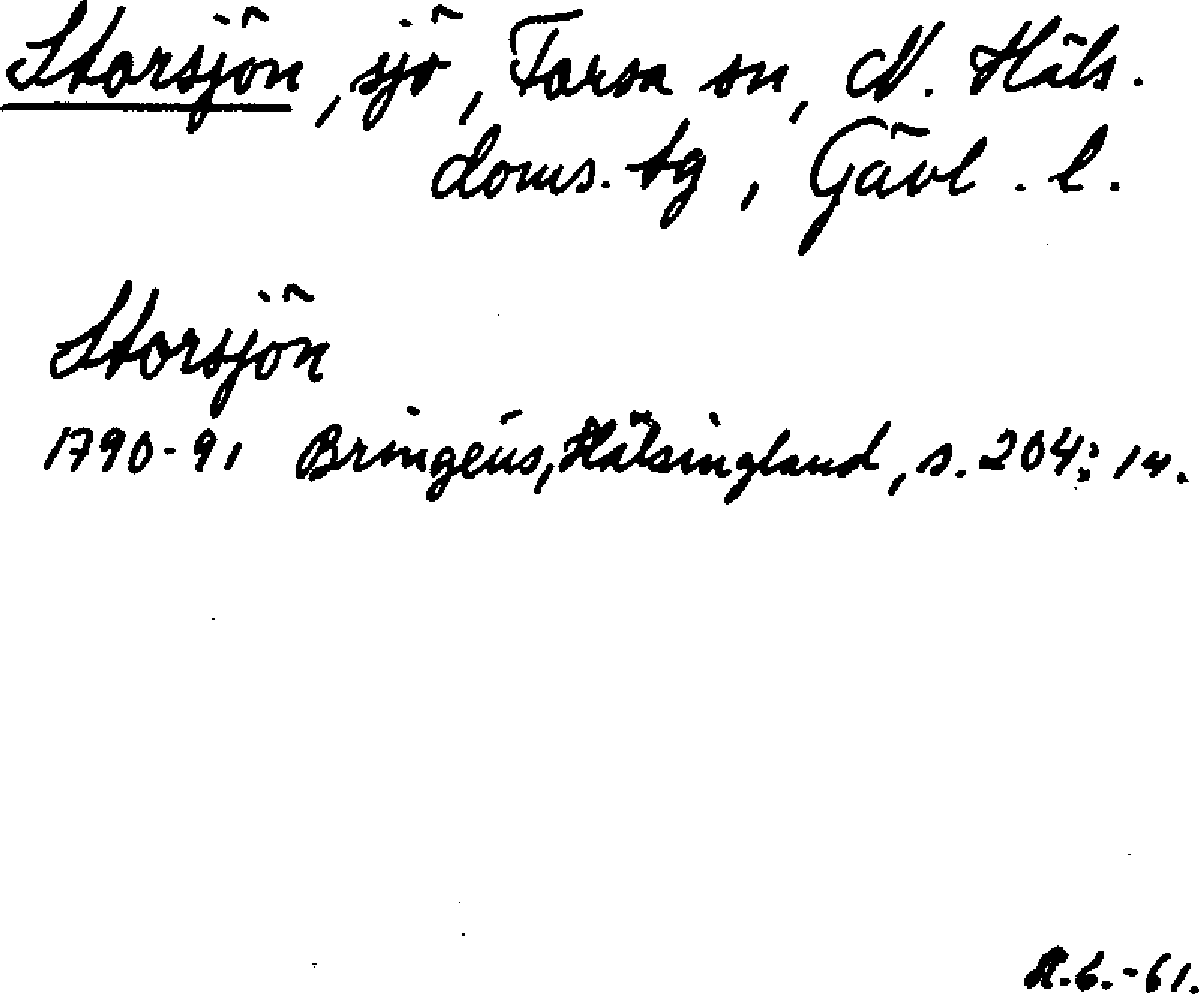 Storsjön, sjö, Forsa sn, N. Häls.
doms. tg, Gävl. l.
Storsjön
1790-91 Bringéus, Hälsingland, s. 204; 14.